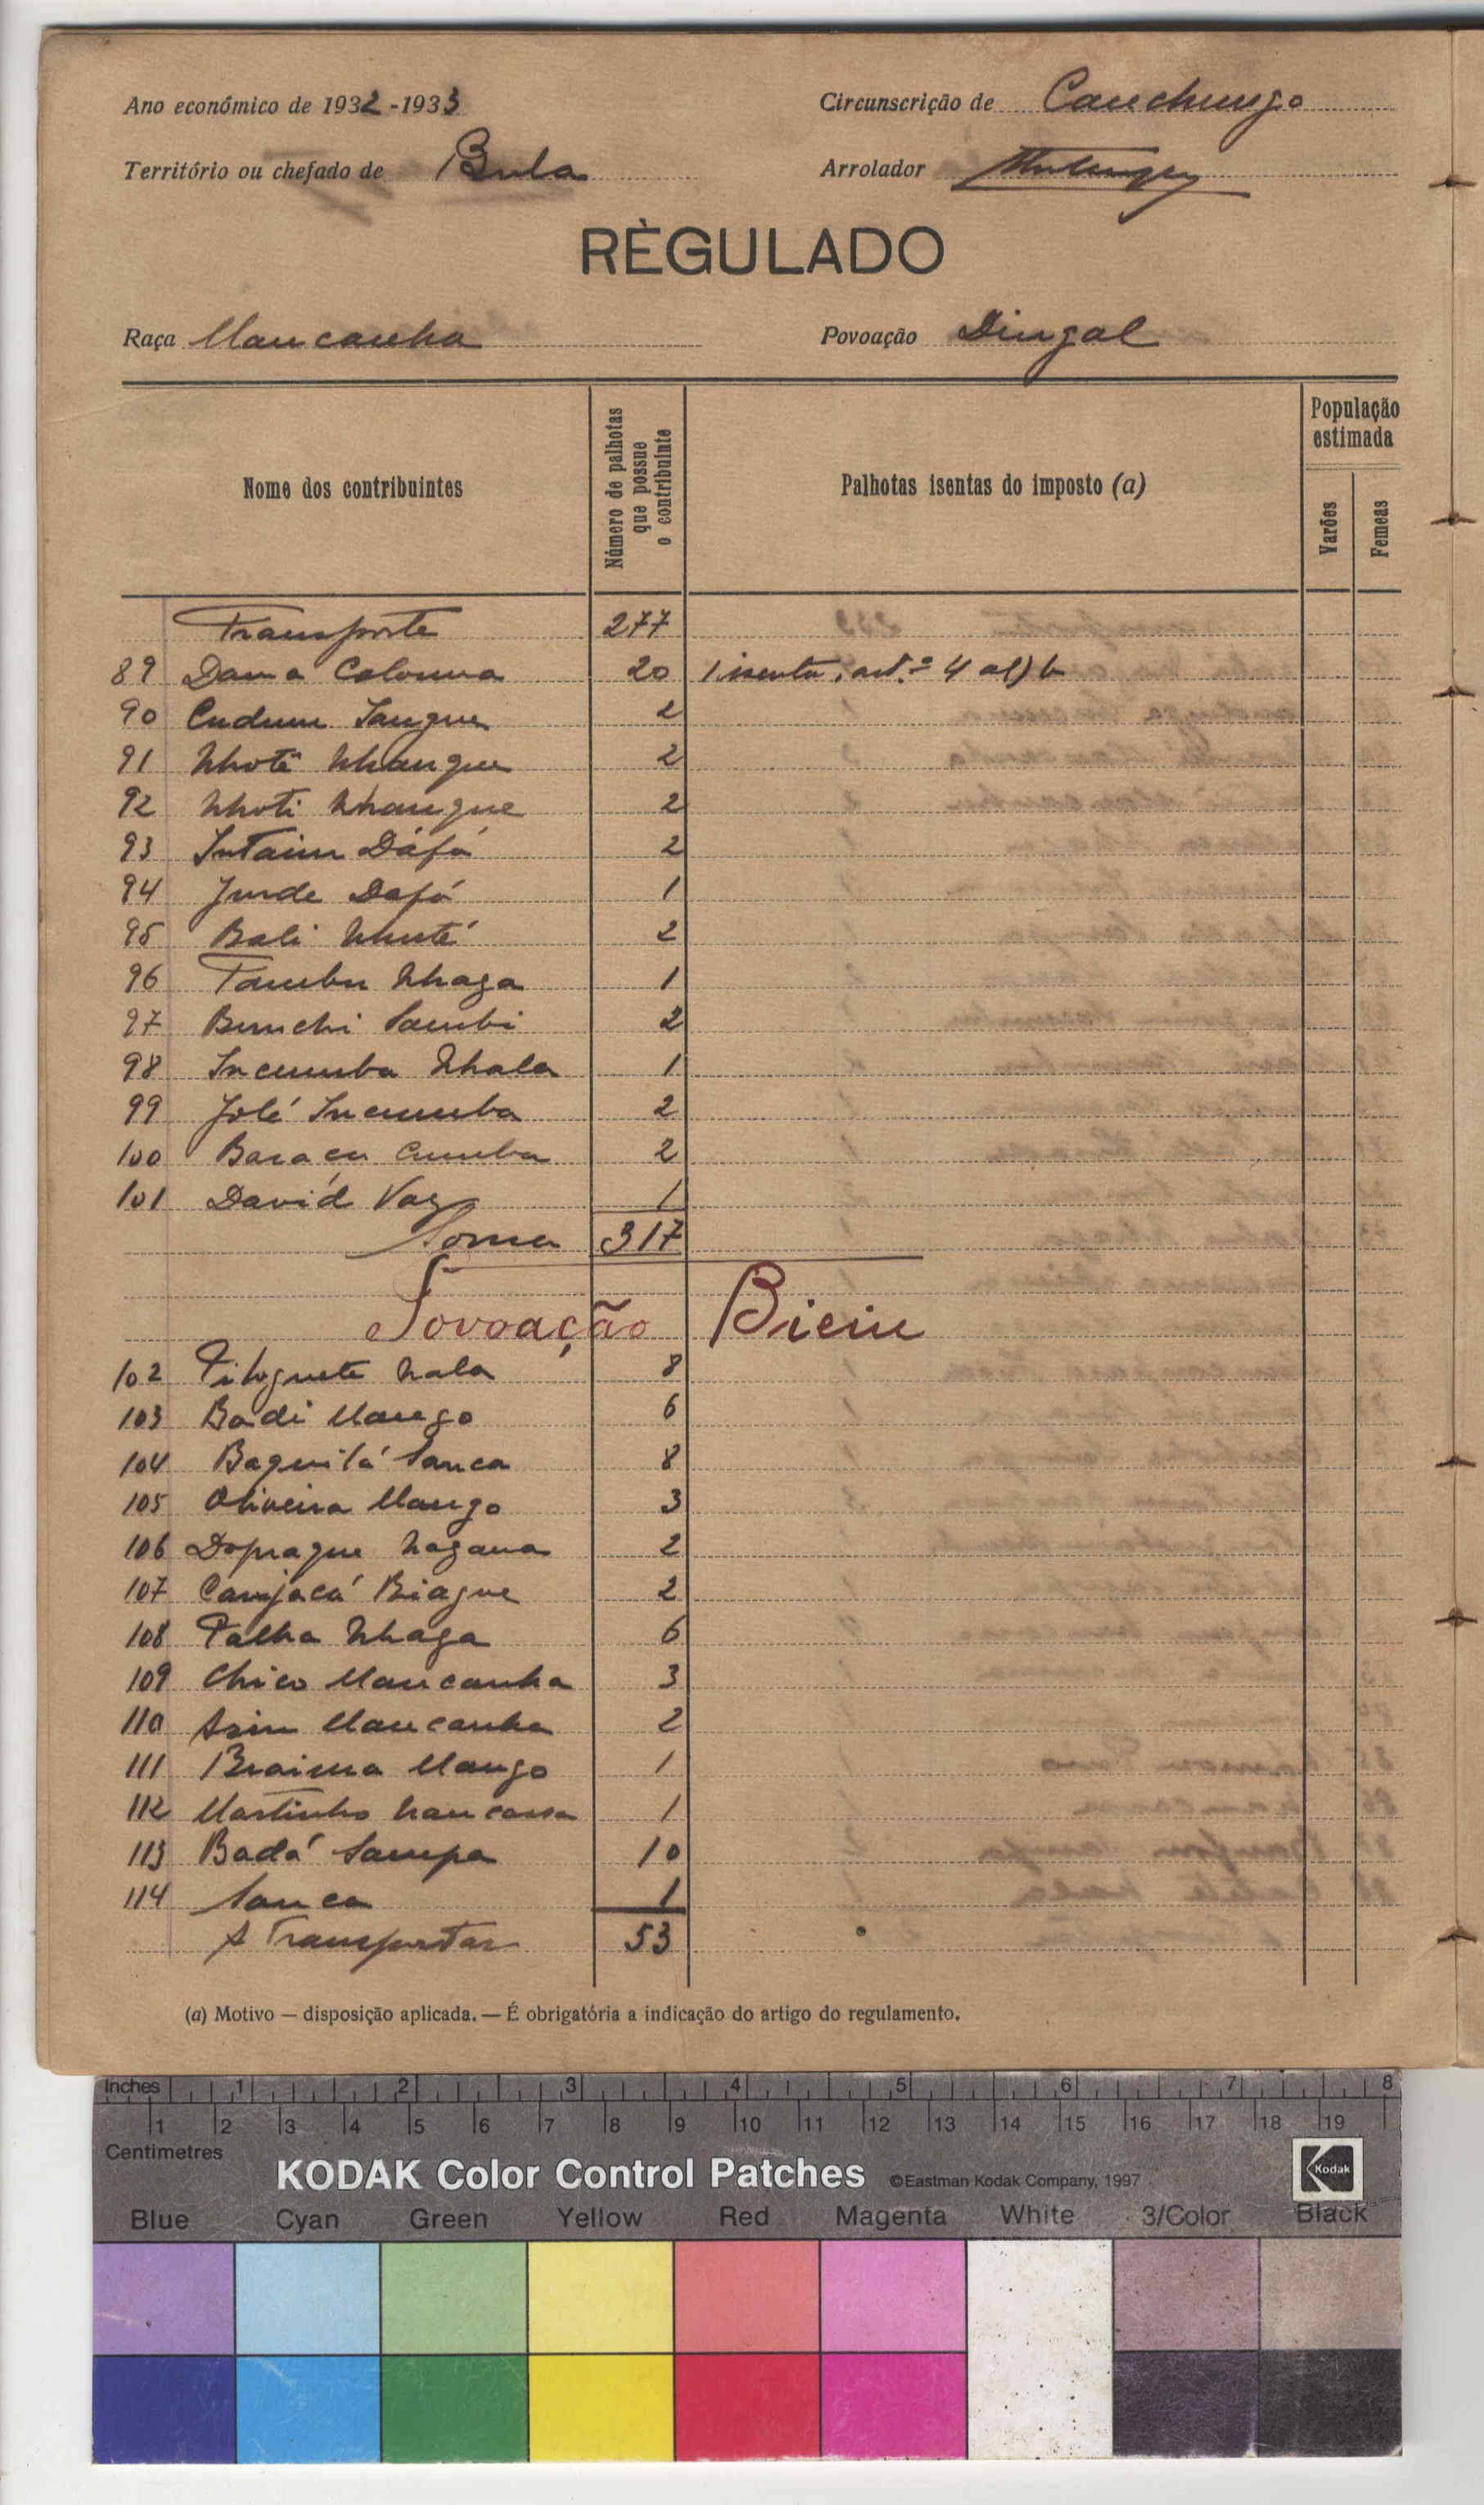 Ano económico de 1932-1933
Circunscrição de Canchungo
Território ou chefado de Bula
Arrolador
RÈGULADO
Raça Mancanha
Povoação Dingal
Nome dos contribuintes
Número de palhotas que possue o contribuinte
Palhotas isentas do imposto (a)
População estimada
Varões
Femeas
Transporte 277
89 Dama Colonna 20 1 isenta, art.º 4 al) b
90 Cudum Sangue 2
91 Nhoté Nhangue 2
92 Nhoti Nhangue 2
93 Intaim Dáfá 2
94 Junde Dafá 1
95 Bali Nhuté 2
96 Tambu Nhaga 1
97 Bunchi Sambi 2
98 Incumba Nhala 1
99 Jolé Incumba 2
100 Baracu Cumba 2
101 Davíd Vaz 1
Soma 317
Povoação Bieiu
102 Nala 8
103 Badi Mango 6
104 Baquilá Sanca 8
105 Oliveira Mango 3
106 Doprague Nagana 2
107 Canjacá Biague 2
108 Palha Nhaga 6
109 Chico Mancanha 3
110 Mancanha 2
111 Braima Mango 1
112 Martinho Nancassa 1
113 Badá Sampa 10
114 Sanca 1
A Transportar 53
(a) Motivo — disposição aplicada. — É obrigatória a indicação do artigo do regulamento.
Inches 1 2 3 4 5 6 7 8
1 2 3 4 5 6 7 8 9 10 11 12 13 14 15 16 17 18 19
Centimetres
KODAK Color Control Patches ©Eastman Kodak Company, 1997 Kodak
Blue Cyan Green Yellow Red Magenta White 3/Color Black